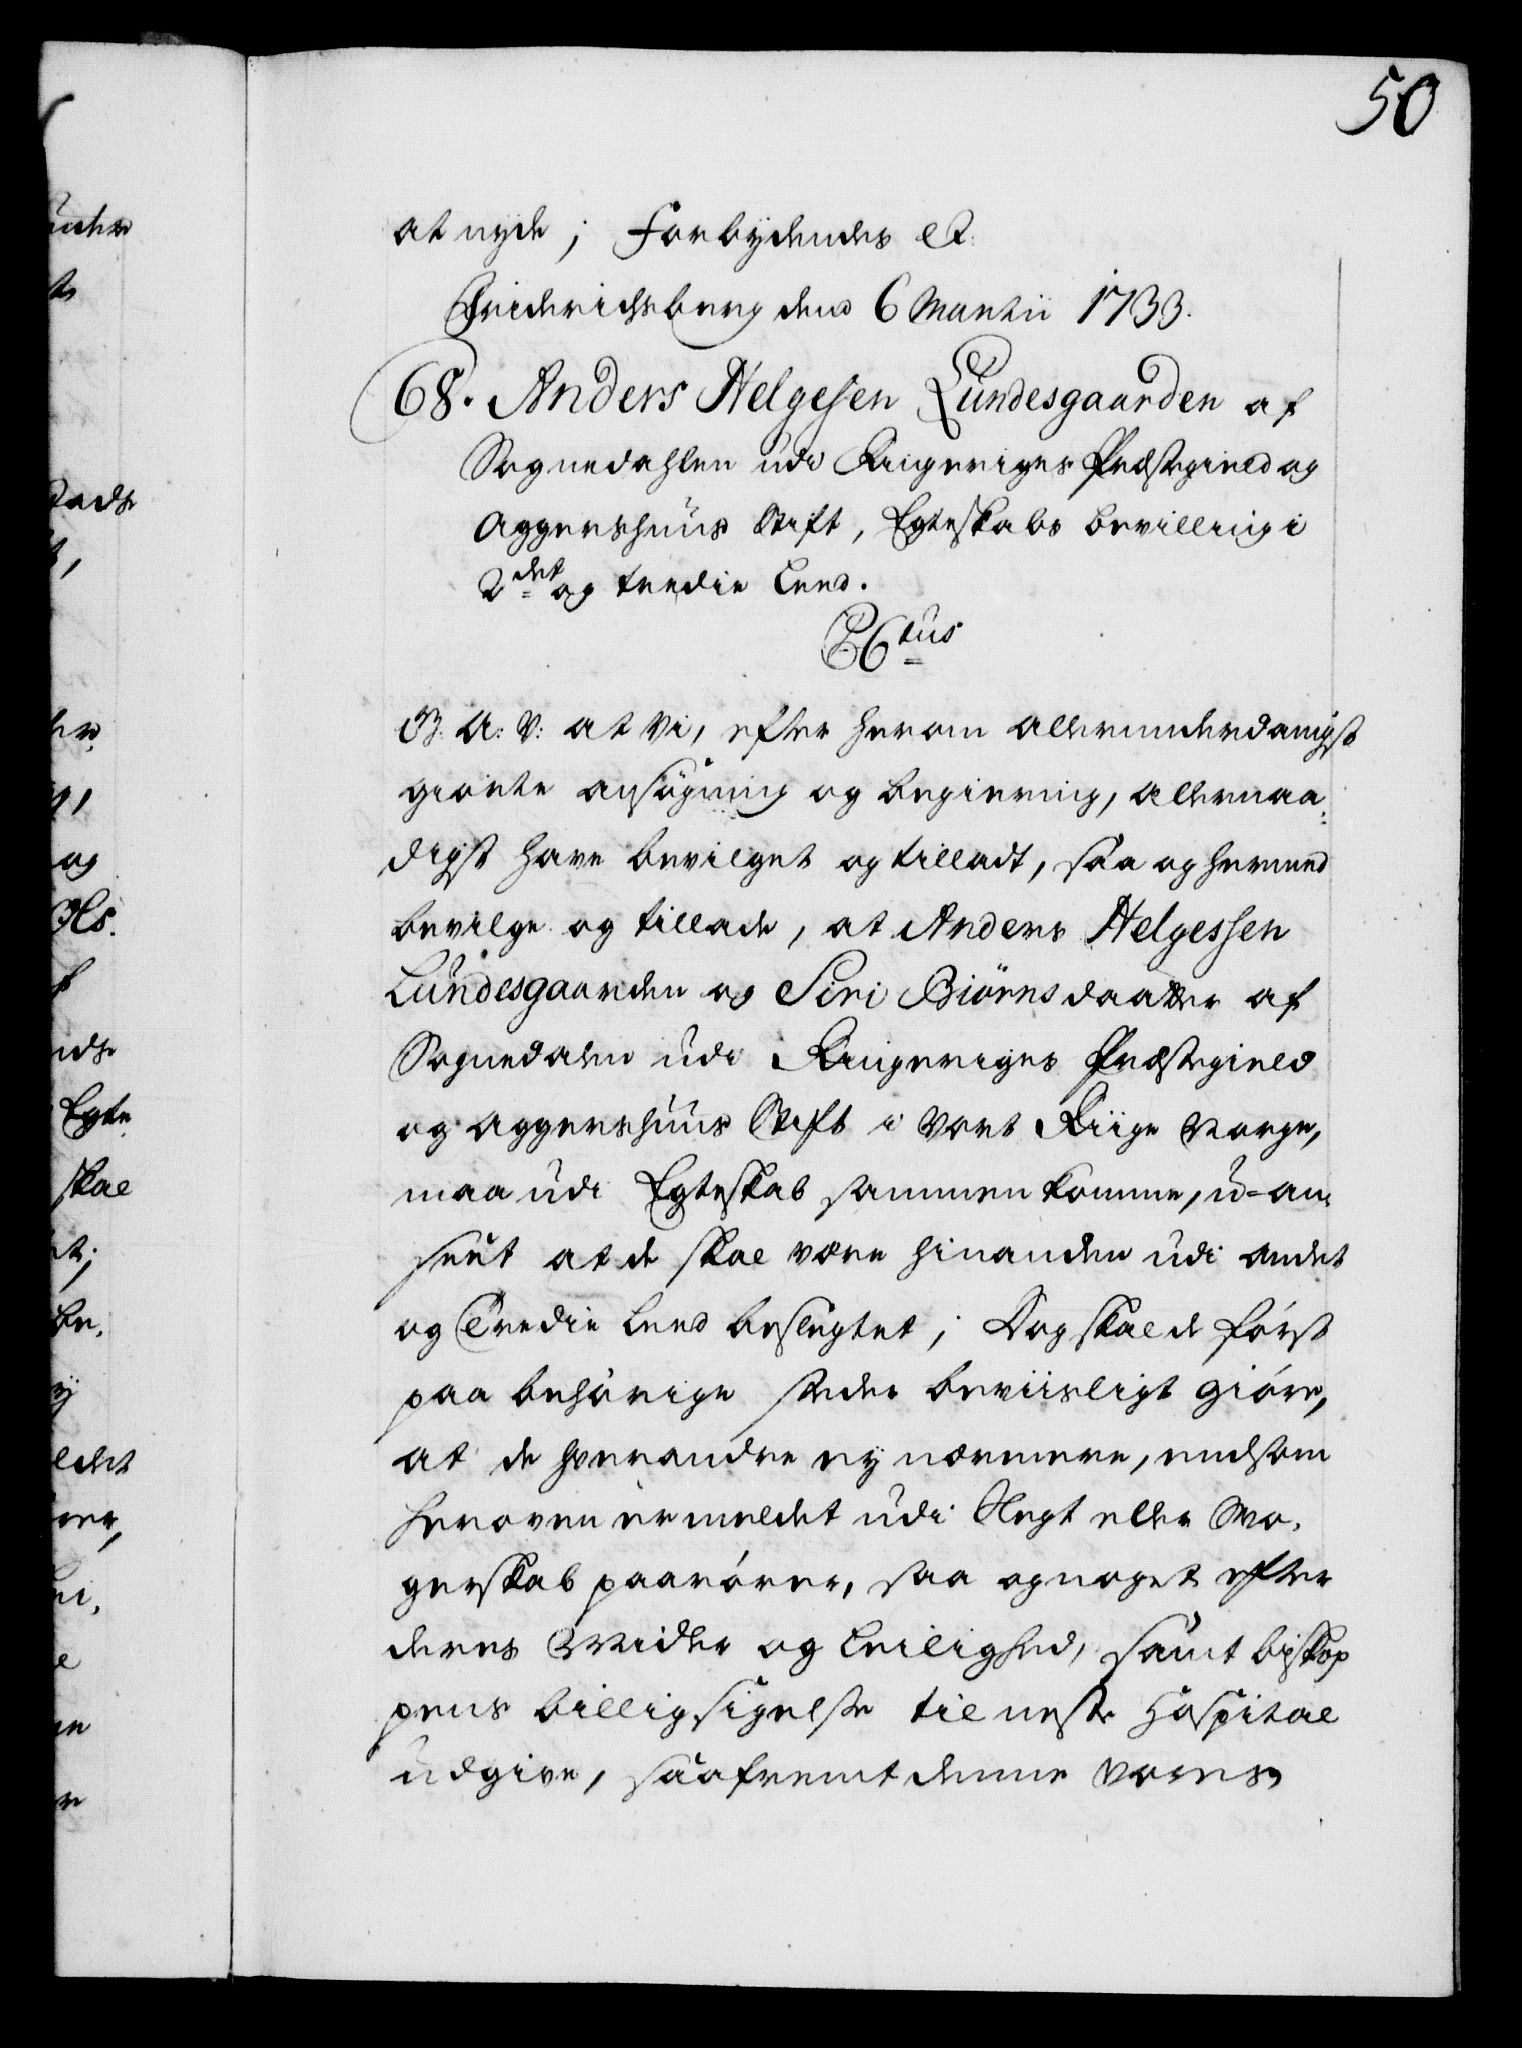 50
at nyde; Forbydendes etc:
Friderichsberg dend 6 Martii 1733.
68. Anders Helgesen Lundesgaarden af
Sognedahlen udi Ringeriges Præstegield og
Aggershuus Stift, Egteskabs bevilling i
2det og tredie Leed.
C6tus
G. A: V: at Vi, efter herom allerunderdanigst
giorte ansøgning og begiering, allernaa-
digst have bevilget og tilladt, saa og hermed
bevilge og tillade, at Anders Helgessen
Lundesgaarden og Siri Biörnsdaatter af
Sognedalen udi Ringeriges Præstegield
og Aggershuus Stift i Vort Riige Norge,
maa udi Egteskab sammen komme, u-an-
seet at de skal være hinanden udi andet
og Tredie Leed beslegtet; Dog skal de først
paa behörige steder beviisligt giöre,
at de hverandre ey nærmere, end som
heroven ermeldet udi Slegt eller Svo-
gerskab paarörer, saa og noget efter
deres Midler og Leilighed, samt biskop
pens billigsigelse til neste Hospital
udgive, saafremt denne Vores